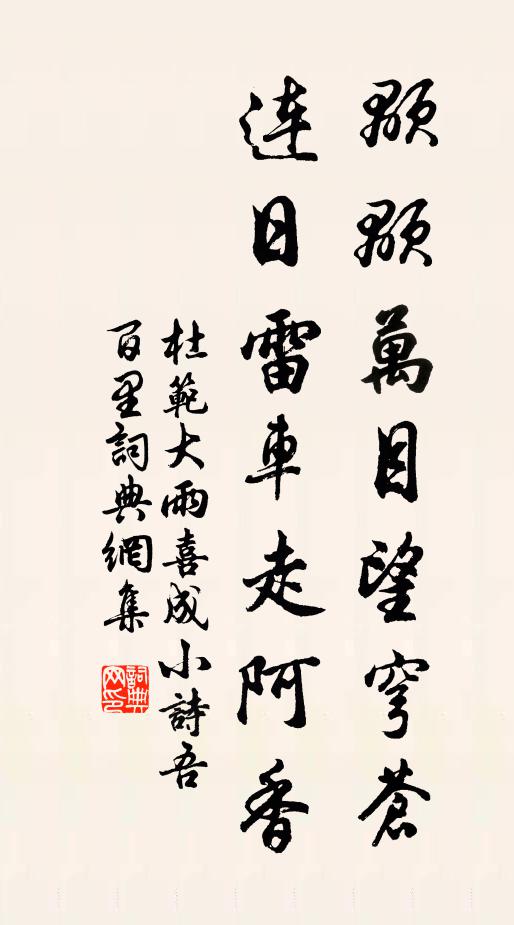 顒顒萬目望穹蒼
連日雷車走阿香
杜範大雨喜成小詩吾
百里詞典網集
詞典網印